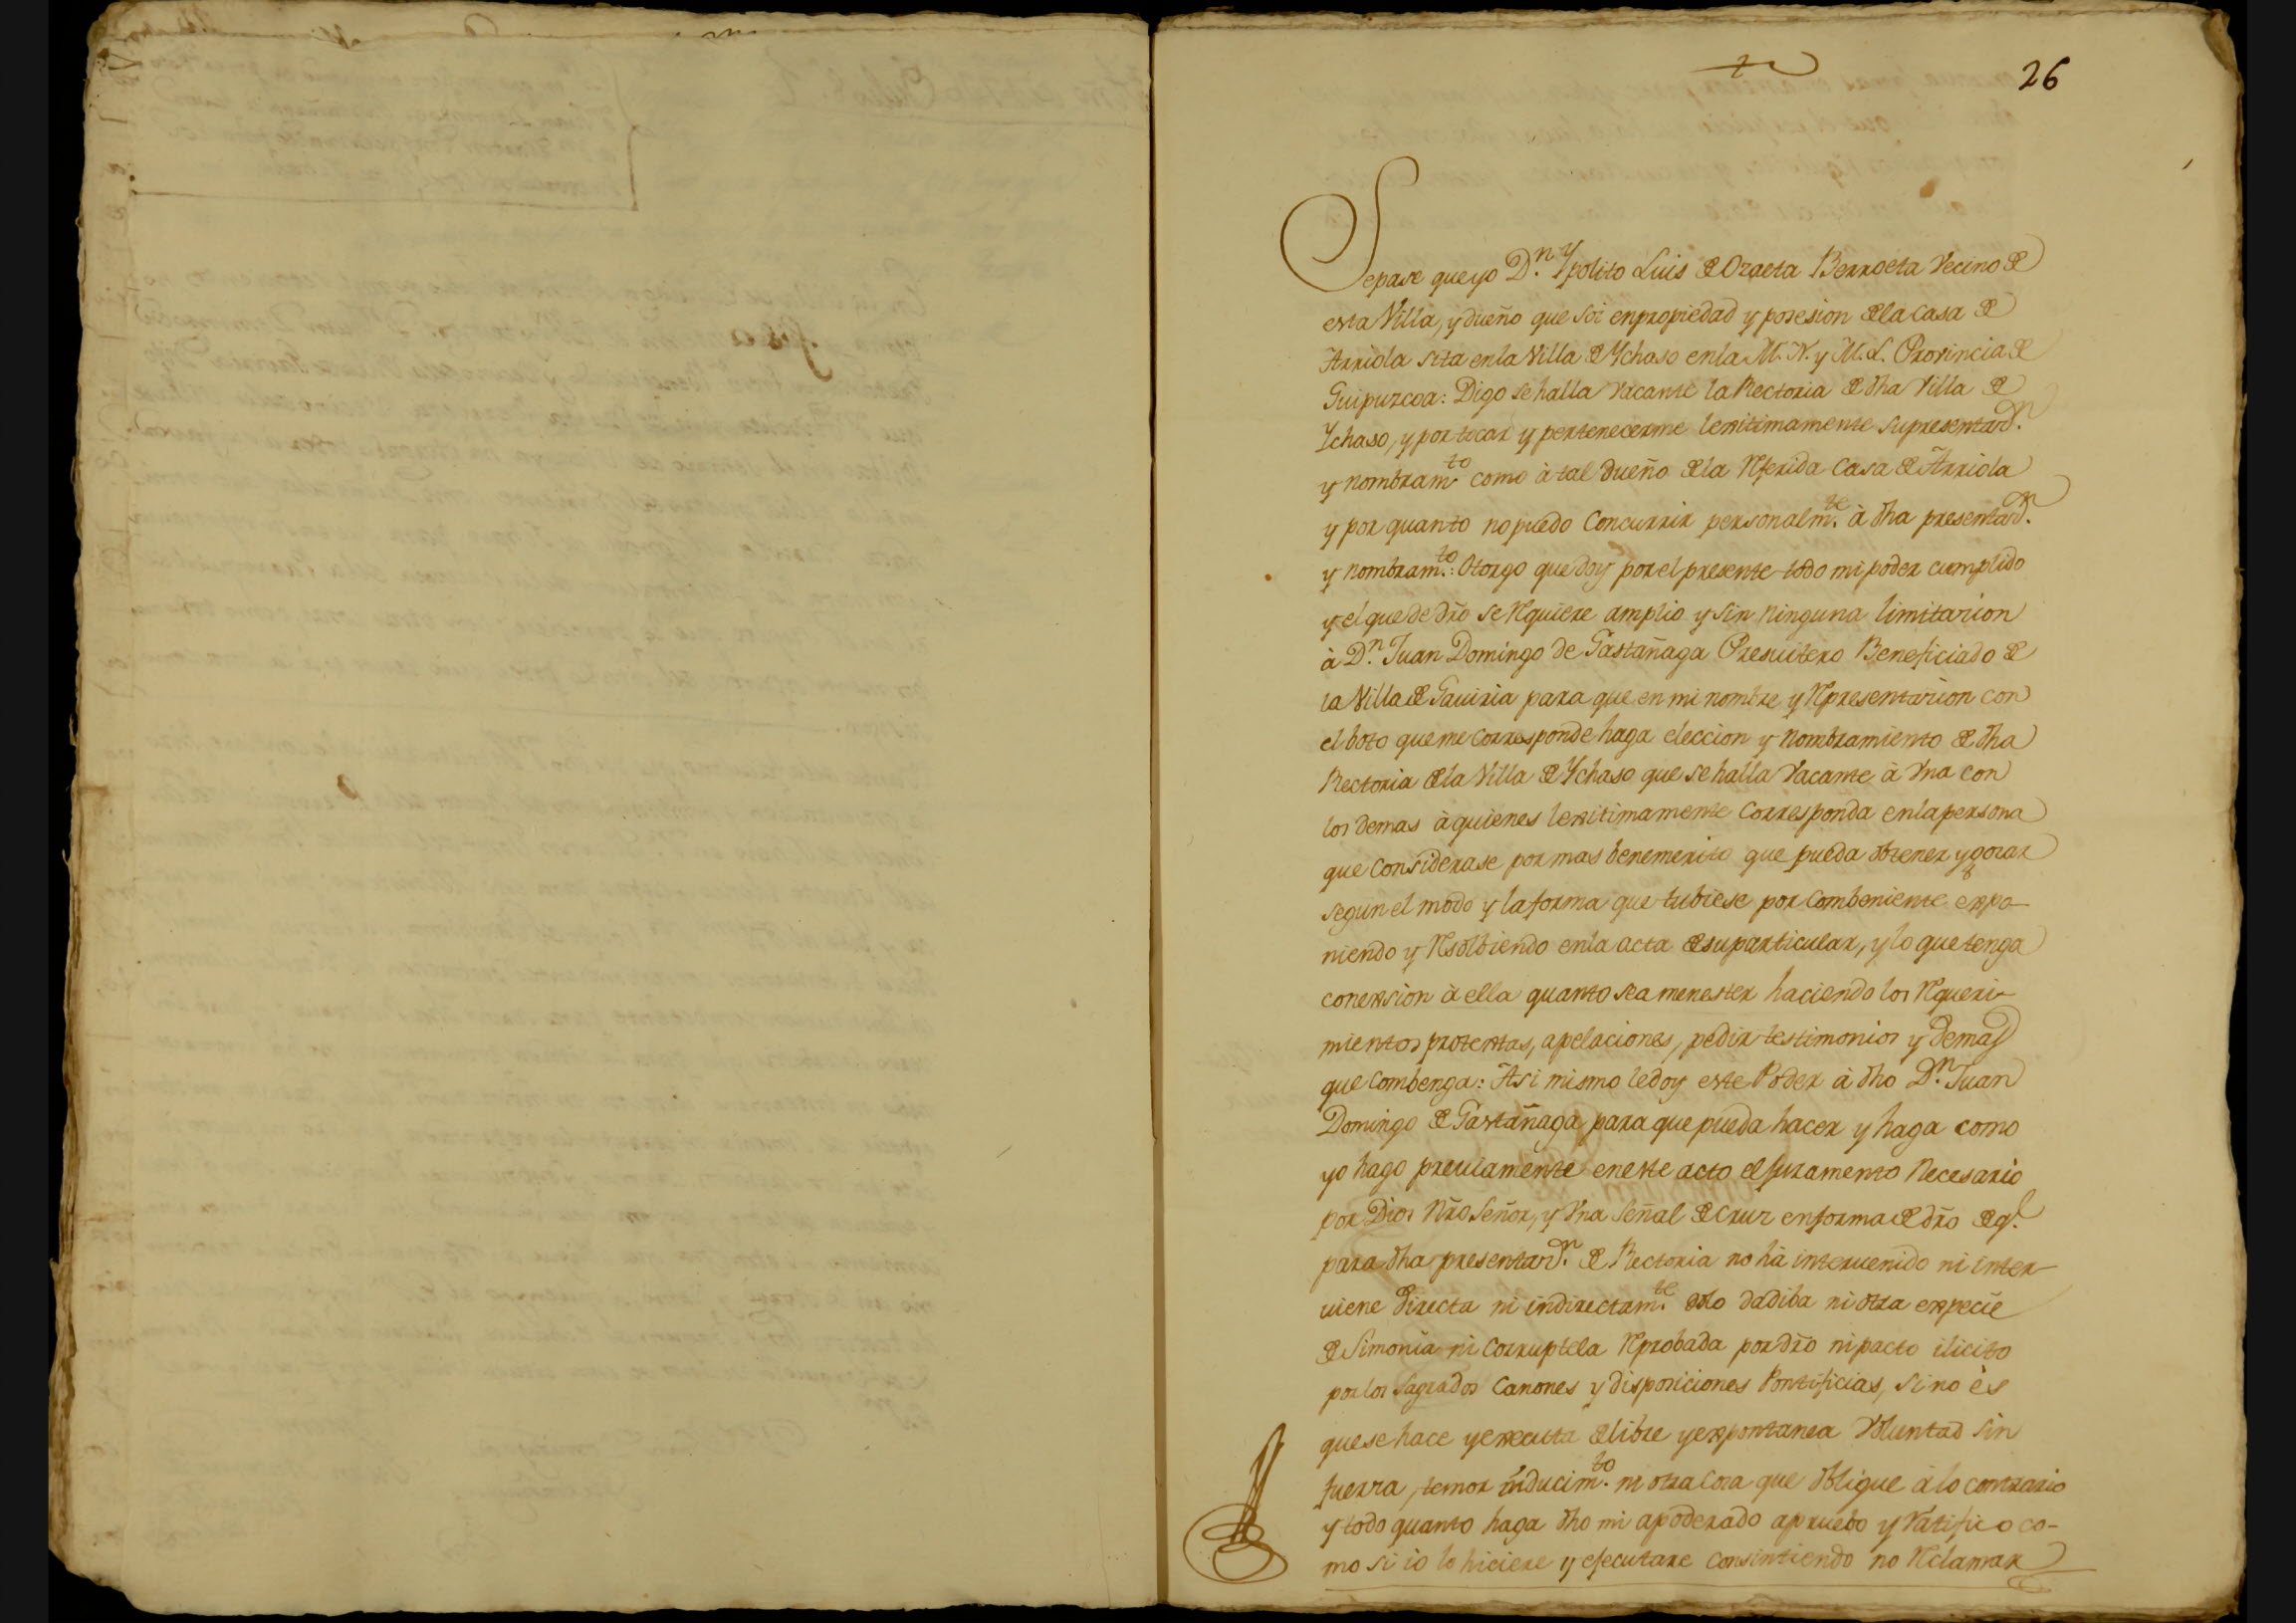 26
Sepase que yo D.n Ypolito Luis de Ozaeta Berroeta Vecino de
esta Villa, y dueño que soi en propiedad y posesion de la casa de
Arriola sita en la Villa de Ychaso en la M. N. y M. L. Provincia de
Guipuzcoa: Digo se halla vacante la Rectoria de dha Villa de
Ychaso, y por tocar y pertenecerme lexitimamente su presentaz.n
y nombram.to como à tal dueño de la Referida casa de Arriola
y por quanto no puedo Concurrir personalm.te à dha presentaz.n
y nombram.to: Otorgo que doy por el presente todo mi poder cumplido
y el que de dro se Requiere amplio y sin ninguna limitacion
à D.n Juan Domingo de Gastañaga Presuitero Beneficiado de
la Villa de Gauiria para que en mi nombre y Representacion con
el boto que me corresponde haga eleccion y nombramiento de dha
Rectoria de la Villa de Ychaso que se halla Vacante à Vna con
los demas à quienes lexitimamente Corresponda en la persona
que Considerase por mas benemerito que pueda obtener y gozar
segun el modo y la forma que tubiese por Combeniente expo-
niendo y Resolbiendo en la acta de su particular, y lo que tenga
conexsion à ella quanto sea menester haciendo los Requeri-
mientos protextas, apelaciones, pedir testimonios y demas
que Combenga: Asi mismo le doy este Poder à dho D.n Juan
Domingo de Gastañaga para que pueda hacer y haga como
yo hago preuiamente en este acto el juramento Necesario
por Dios Nro Señor, y Vna señal de Cruz en forma de dro de q.e
para dha presentaz.n de Rectoria no hà interuenido ni inter-
uiene directa ni indirectam.te dolo dadiba ni otra expecie
de Simonia ni Corruptela Reprobada por dro ni pacto ilicito
por los Sagrados Canones y disposiciones Pontificias, si no ès
que se hace y executa de libre y expontanea Voluntad sin
fuerza, temor inducim.to ni otra Cosa que obligue à lo contrario
y todo quanto haga dho mi apoderado apruebo y Ratifico co-
mo si io lo hiciere y ejecutare Consintiendo no Reclamar